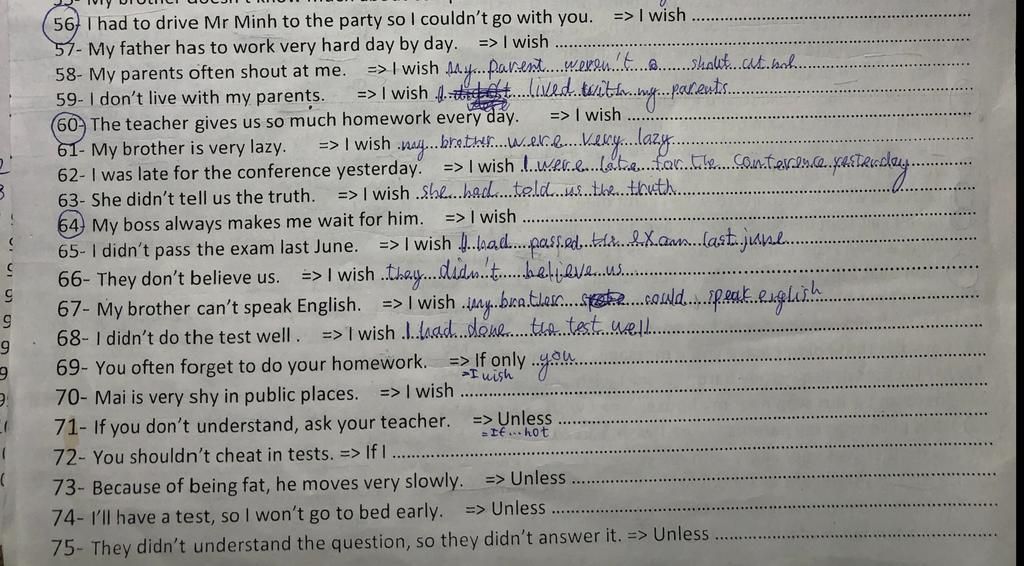 56- I had to drive Mr Minh to the party so I couldn't go with you. => I wish
57- My father has to work very hard day by day. => I wish
58- My parents often shout at me. => I wish my parent weren't shout at me
59- I don't live with my parents. => I wish I lived with my parents
60- The teacher gives us so much homework every day. => I wish
61- My brother is very lazy. => I wish my brother were very lazy
62- I was late for the conference yesterday. => I wish I were late for the conference yesterday
63- She didn't tell us the truth. => I wish she had told us the truth
64- My boss always makes me wait for him. => I wish
65- I didn't pass the exam last June. => I wish I had passed the exam last june
66- They don't believe us. => I wish they didn't believe us
67- My brother can't speak English. => I wish my brother could speak english
68- I didn't do the test well . => I wish I had done the test well
69- You often forget to do your homework. => If only you
= I wish
70- Mai is very shy in public places. => I wish
71- If you don't understand, ask your teacher. => Unless
= If ... not
72- You shouldn't cheat in tests. => If I
73- Because of being fat, he moves very slowly. => Unless
74- I'll have a test, so I won't go to bed early. => Unless
75- They didn't understand the question, so they didn't answer it. => Unless